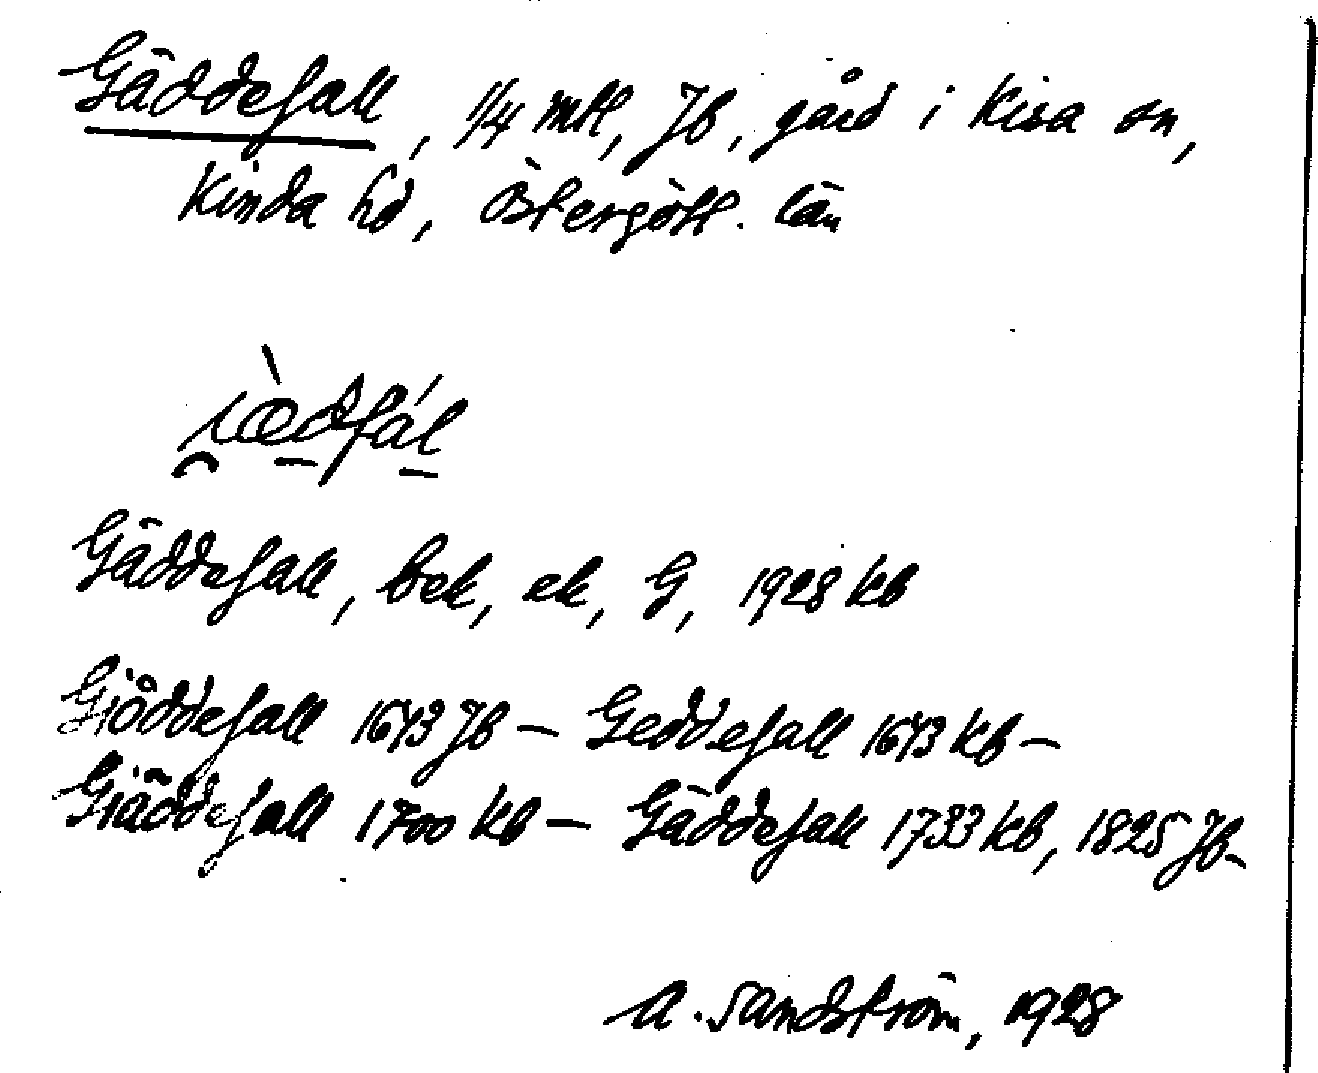 Gäddefall, 1/4 mtl, Jb, gård i Kisa sn,
Kinda hd, Östergötl. län
Gäddefall, bek, ek, G, 1928 kb
Giöddefall 1643 Jb – Geddefall 1643 kb –
Giäddefall 1700 kb – Gäddefall 1733 kb, 1825 Jb –
A. Sandström, 1928